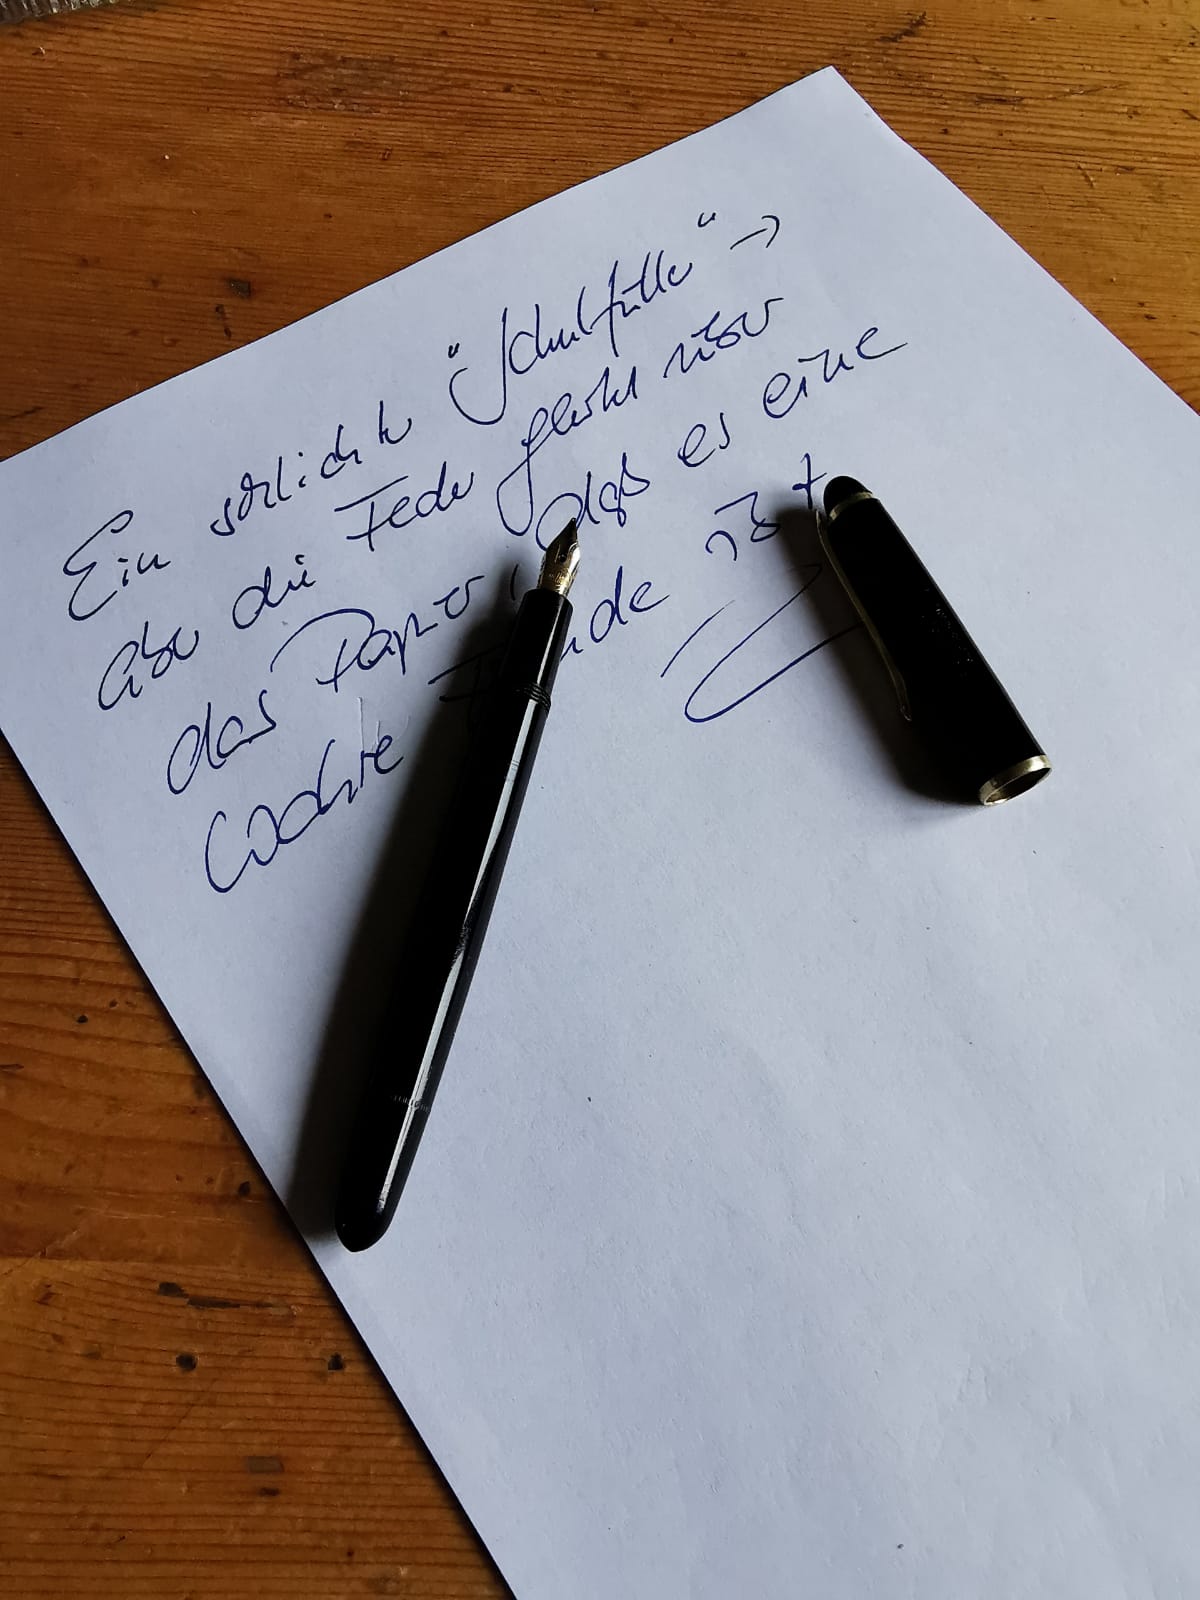 Ein schlichter "Schulfüller" →
aber die Feder gleitet über
das Papier, daß es eine
echte Freude ist